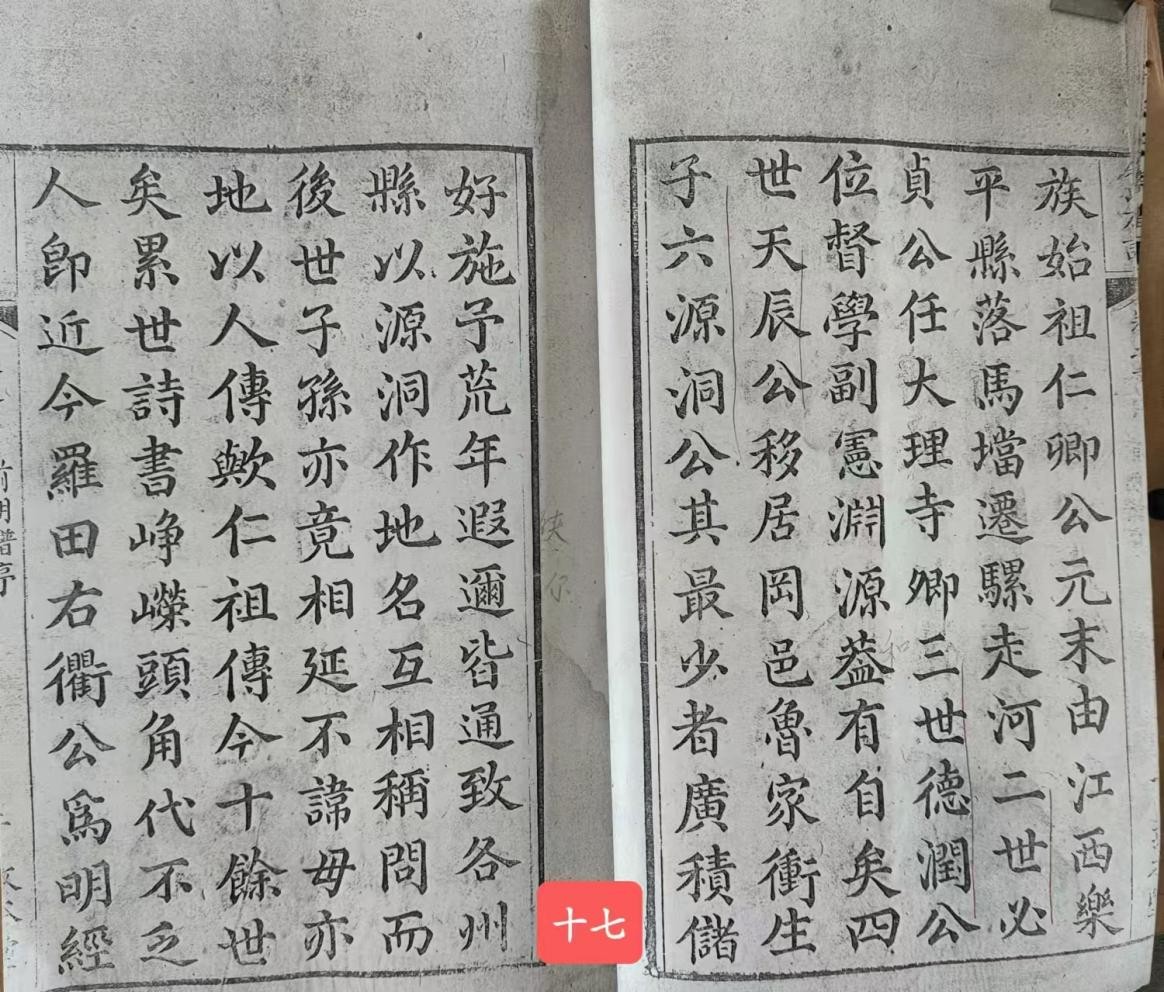 族始祖仁卿公元末由江西樂
平縣落馬壋遷騾走河二世必
貞公任大理寺卿三世德潤公
位督學副憲淵源葢有自矣四
世天辰公移居岡邑魯家衝生
子六源洞公其最少者廣積儲
好施予荒年遐邇皆通致各州
縣以源洞作地名互相稱問而
後世子孫亦竟相延不諱毋亦
地以人傳歟仁祖傳今十餘世
矣累世詩書崢嶸頭角代不乏
人卽近今羅田右衢公爲明經
前明譜序
十七